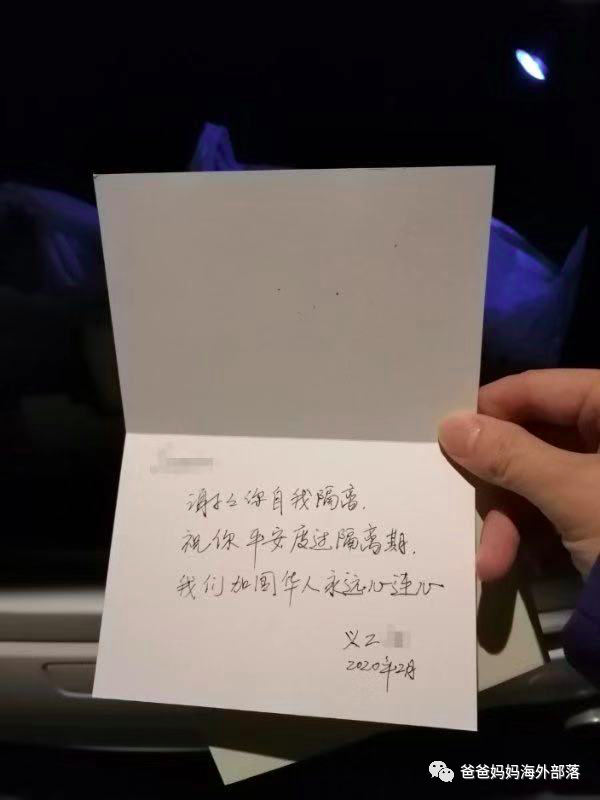 谢谢你自我隔离.
祝你平安度过隔离期.
我们加国华人永远心连心
义工
2020年2月
爸爸妈妈海外部落